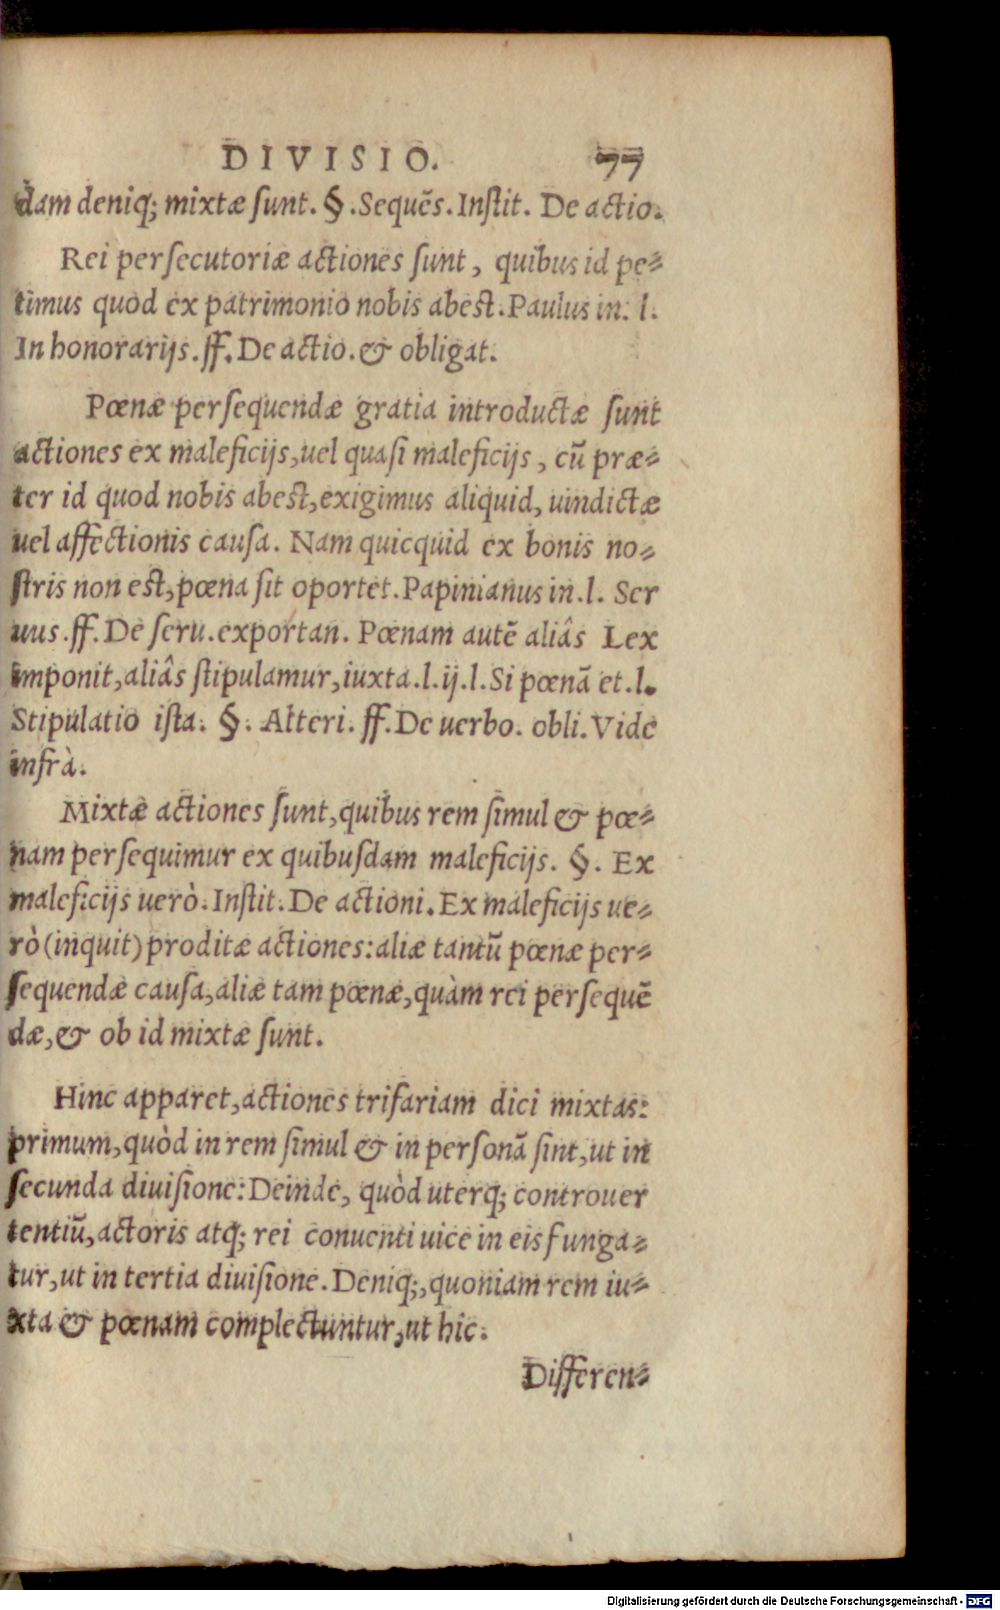 DIVISIO. 77
dam deniq; mixtæ sunt. §. Sequẽs. Instit. De actio.
Rei persecutoriæ actiones sunt, quibus id pe-
timus quod ex patrimonio nobis abest. Paulus in. l.
In honorarijs. ff. De actio. & obligat.
Pœnæ persequendæ gratia introductæ sunt
actiones ex maleficijs, uel quasi maleficijs, cũ præ-
ter id quod nobis abest, exigimus aliquid, uindictæ
uel affectionis causa. Nam quicquid ex bonis no-
stris non est, pœna sit oportet. Papinianus in. l. Ser
uus. ff. De seru. exportan. Pœnam autẽ aliâs Lex
imponit, aliâs stipulamur, iuxta. l. ij. l. Si pœnã et. l.
Stipulatio ista. §. Alteri. ff. De uerbo. obli. Vide
infrà.
Mixtæ actiones sunt, quibus rem simul & pœ-
nam persequimur ex quibusdam maleficijs. §. Ex
maleficijs uerò. Instit. De actioni. Ex maleficijs ue-
rò (inquit) proditæ actiones: aliæ tantũ pœnæ per-
sequendæ causa, aliæ tam pœnæ, quàm rei persequẽ
dæ, & ob id mixtæ sunt.
Hinc apparet, actiones trifariam dici mixtas:
primum, quòd in rem simul & in personã sint, ut in
secunda diuisione: Deinde, quòd uterq; controuer
tentiũ, actoris atq; rei conuenti uice in eis funga-
tur, ut in tertia diuisione. Deniq;, quoniam rem iu-
xta & pœnam complectuntur, ut hic.
Differen-
Digitalisierung gefördert durch die Deutsche Forschungsgemeinschaft - DFG